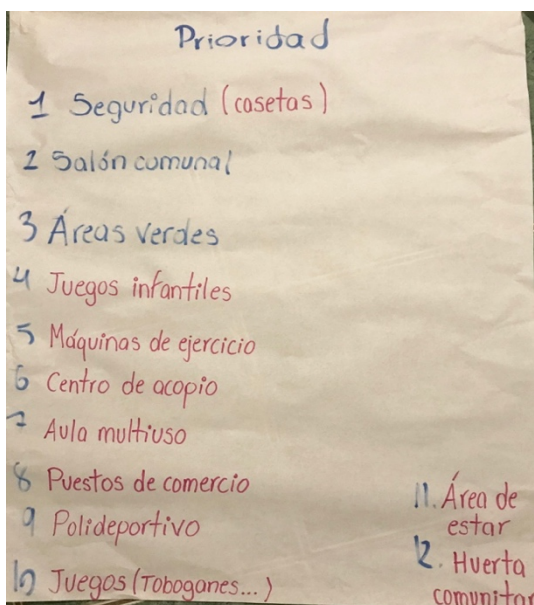 Prioridad
1 Seguridad (casetas)
2 Salón comunal
3 Áreas verdes
4 Juegos infantiles
5 Máquinas de ejercicio
6 Centro de acopio
7 Aula multiuso
8 Puestos de comercio
9 Polideportivo
10 Juegos (Toboganes...)
11. Área de
estar
12. Huerta
comunitar